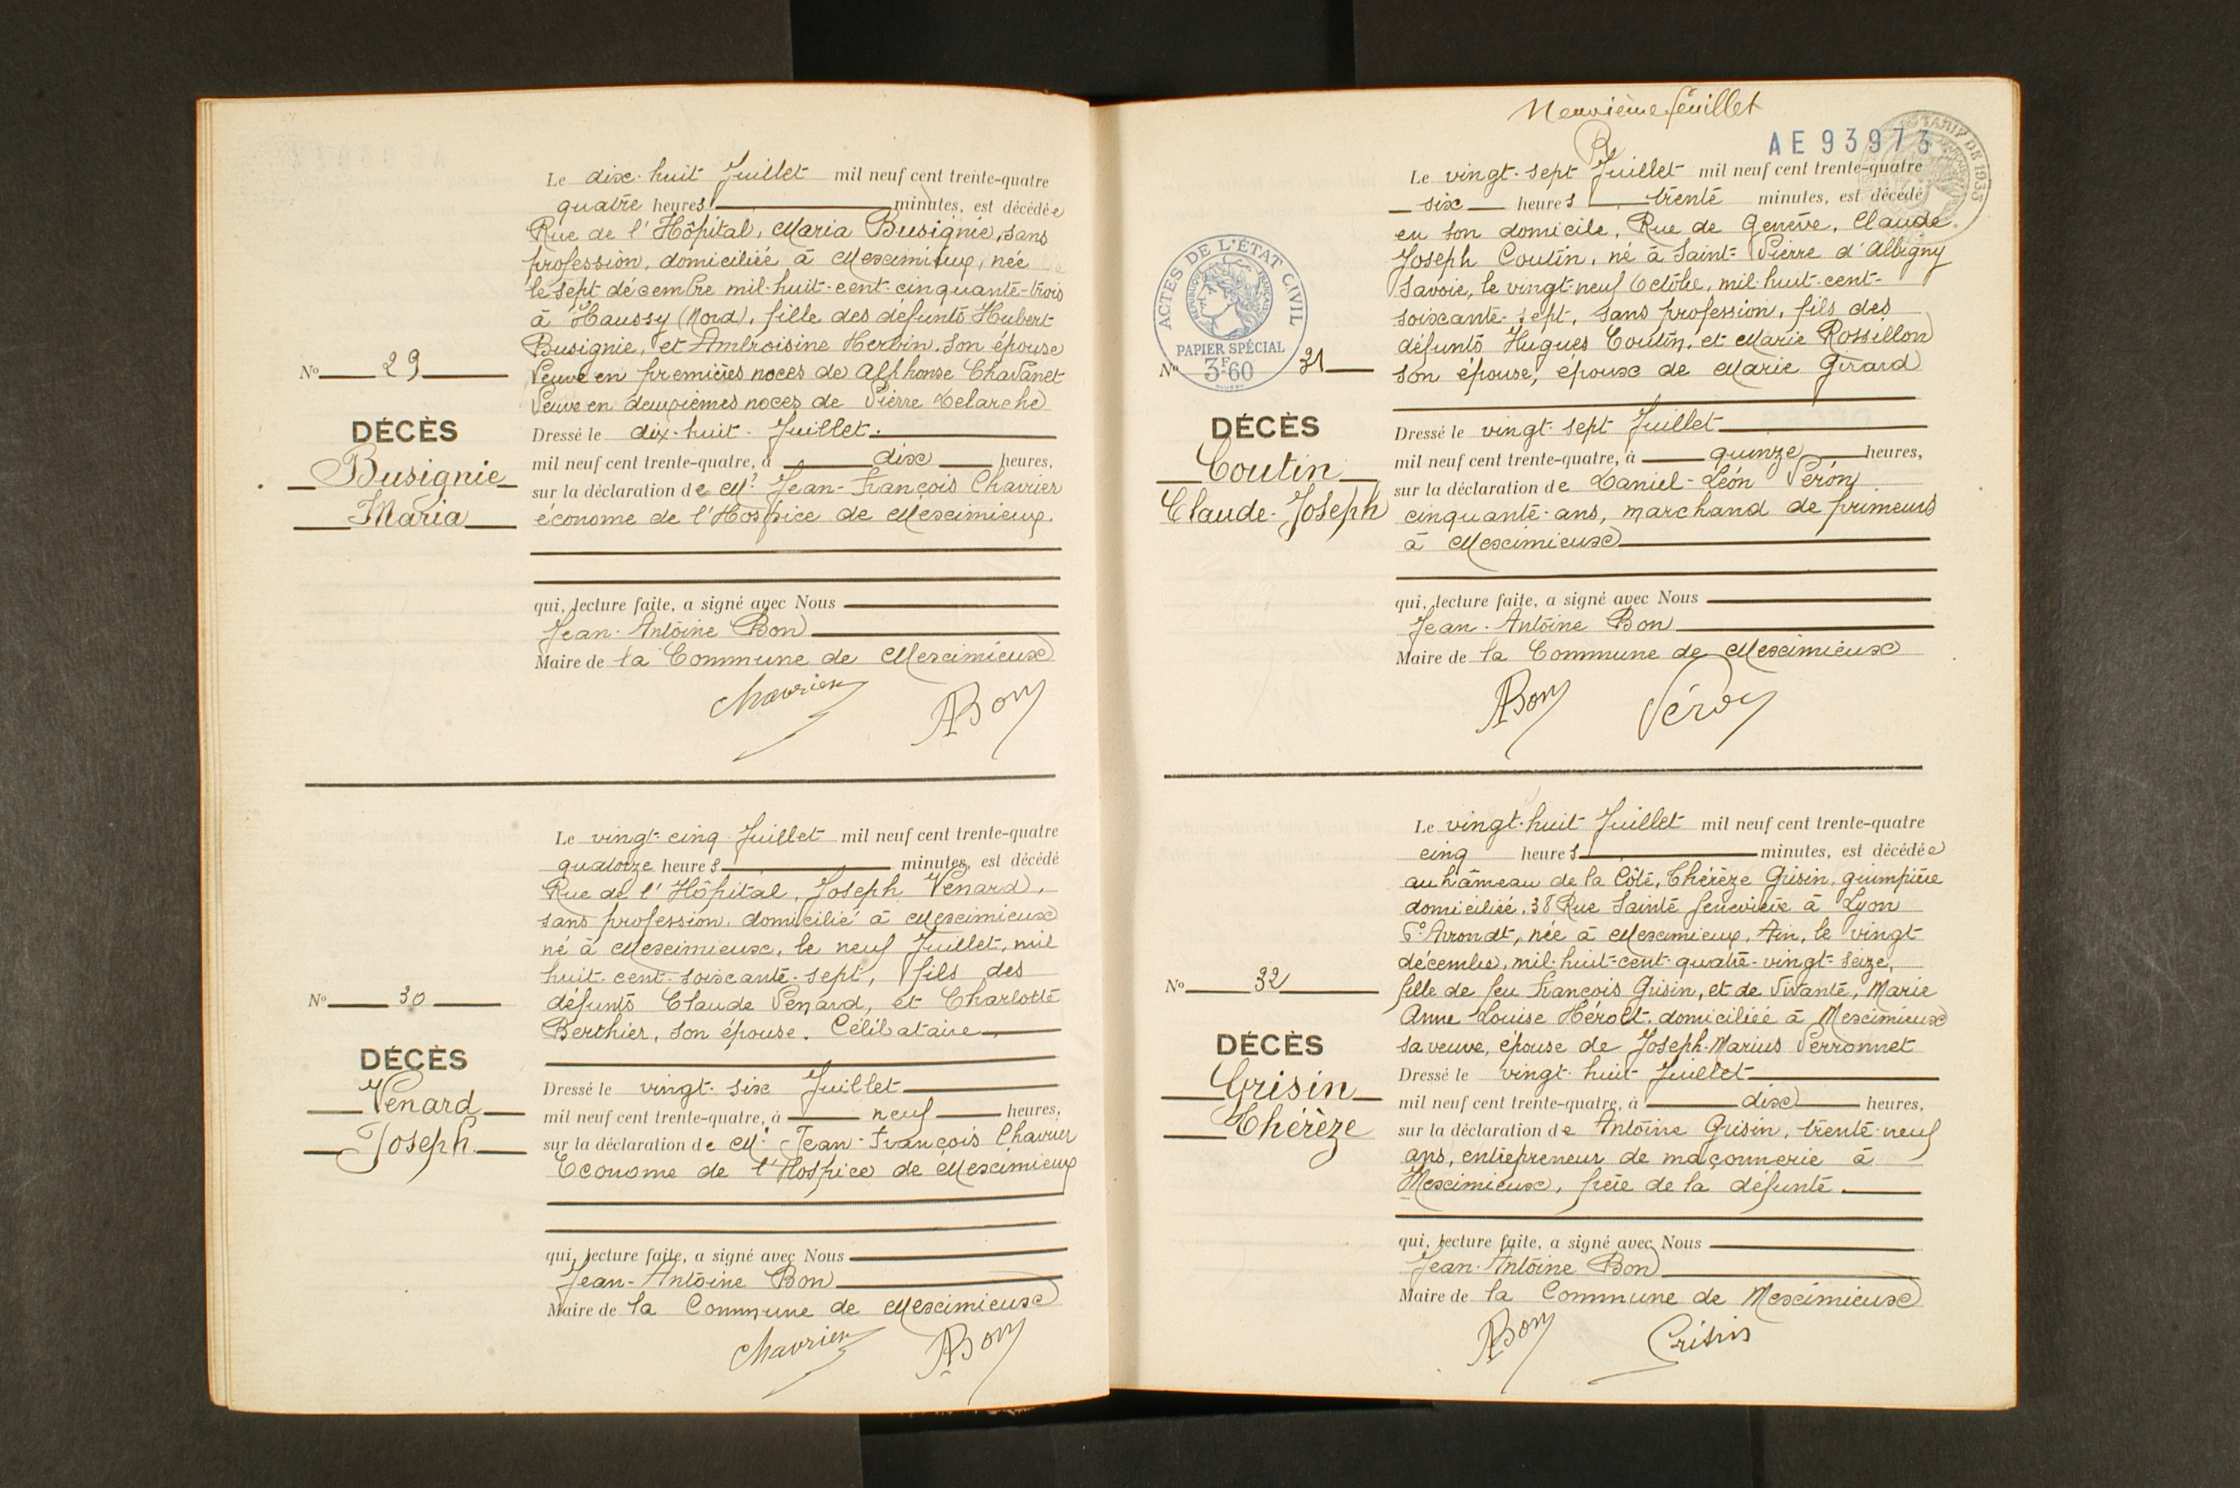 Le dix-huit Juillet mil neuf cent trente-quatre
quatre heures minutes, est décédée
Rue de l'Hôpital, Maria Busignie, sans
profession, domiciliée à Meximieux, née
le sept décembre mil-huit-cent-cinquante-trois
à Haussy (Nord), fille des défunts Hubert
Busignie, et Ambroisine Herbin, son épouse
Veuve en premières noces de Alphonse Chavanet
Veuve en deuxièmes noces de Pierre Delarche
No 29
DÉCÈS
Busignie
Maria
Dressé le dix-huit Juillet.
mil neuf cent trente-quatre, à dix heures,
sur la déclaration de Mr Jean-François Chavrier
économe de l'Hospice de Meximieux.
qui, lecture faite, a signé avec Nous
Jean-Antoine Bon
Maire de la Commune de Meximieux
Chavrier ABon
Le vingt-cinq Juillet mil neuf cent trente-quatre
quatorze heures minutes, est décédé
Rue de l'Hôpital, Joseph Venard,
sans profession, domicilié à Meximieux
né à Meximieux, le neuf Juillet, mil
huit-cent-soixante-sept, fils des
défunts Claude Venard, et Charlotte
Berthier, son épouse. Célibataire
No 30
DÉCÈS
Venard
Joseph
Dressé le vingt-six Juillet
mil neuf cent trente-quatre, à neuf heures,
sur la déclaration de Mr Jean-François Chavrier
Econome de l'Hospice de Meximieux
qui, lecture faite, a signé avec Nous
Jean-Antoine Bon
Maire de la Commune de Meximieux
Chavrier ABon
Neuvième feuillet
AE 93973
TARIF DE 1933
Le vingt-sept Juillet mil neuf cent trente-quatre
six heures trente minutes, est décédé
en son domicile, Rue de Genève, Claude
Joseph Coutin, né à Saint-Pierre d'Albigny
Savoie, le vingt-neuf Octobre, mil-huit-cent-
soixante-sept, sans profession, fils des
défunts Hugues Coutin, et Marie Rossillon
son épouse, époux de Marie Girard
ACTES DE L'ÉTAT CIVIL
RÉPUBLIQUE FRANÇAISE
PAPIER SPÉCIAL
3F60
No 31
DÉCÈS
Coutin
Claude-Joseph
Dressé le vingt-sept Juillet
mil neuf cent trente-quatre, à quinze heures,
sur la déclaration de Daniel-Léon Péron
cinquante-ans, marchand de primeurs
à Meximieux
qui, lecture faite, a signé avec Nous
Jean-Antoine Bon
Maire de la Commune de Meximieux
ABon Péron
Le vingt-huit Juillet mil neuf cent trente-quatre
cinq heures minutes, est décédée
au hâmeau de la Côte, Thérèze Grisin, guimpière
domiciliée, 38 Rue Sainte Geneviève à Lyon
6e Arrondt, née à Meximieux, Ain, le vingt
décembre, mil-huit-cent-quatre-vingt-seize,
fille de feu François Grisin, et de Vivante, Marie
Anne Louise Hérolt, domiciliée à Meximieux
sa veuve, épouse de Joseph-Marius Perronnet
No 32
DÉCÈS
Grisin
Thérèze
Dressé le vingt-huit Juillet
mil neuf cent trente-quatre, à dix heures,
sur la déclaration de Antoine Grisin, trente-neuf
ans, entrepreneur de maçonnerie à
Meximieux, frère de la défunte.
qui, lecture faite, a signé avec Nous
Jean-Antoine Bon
Maire de la Commune de Meximieux
ABon Grisin